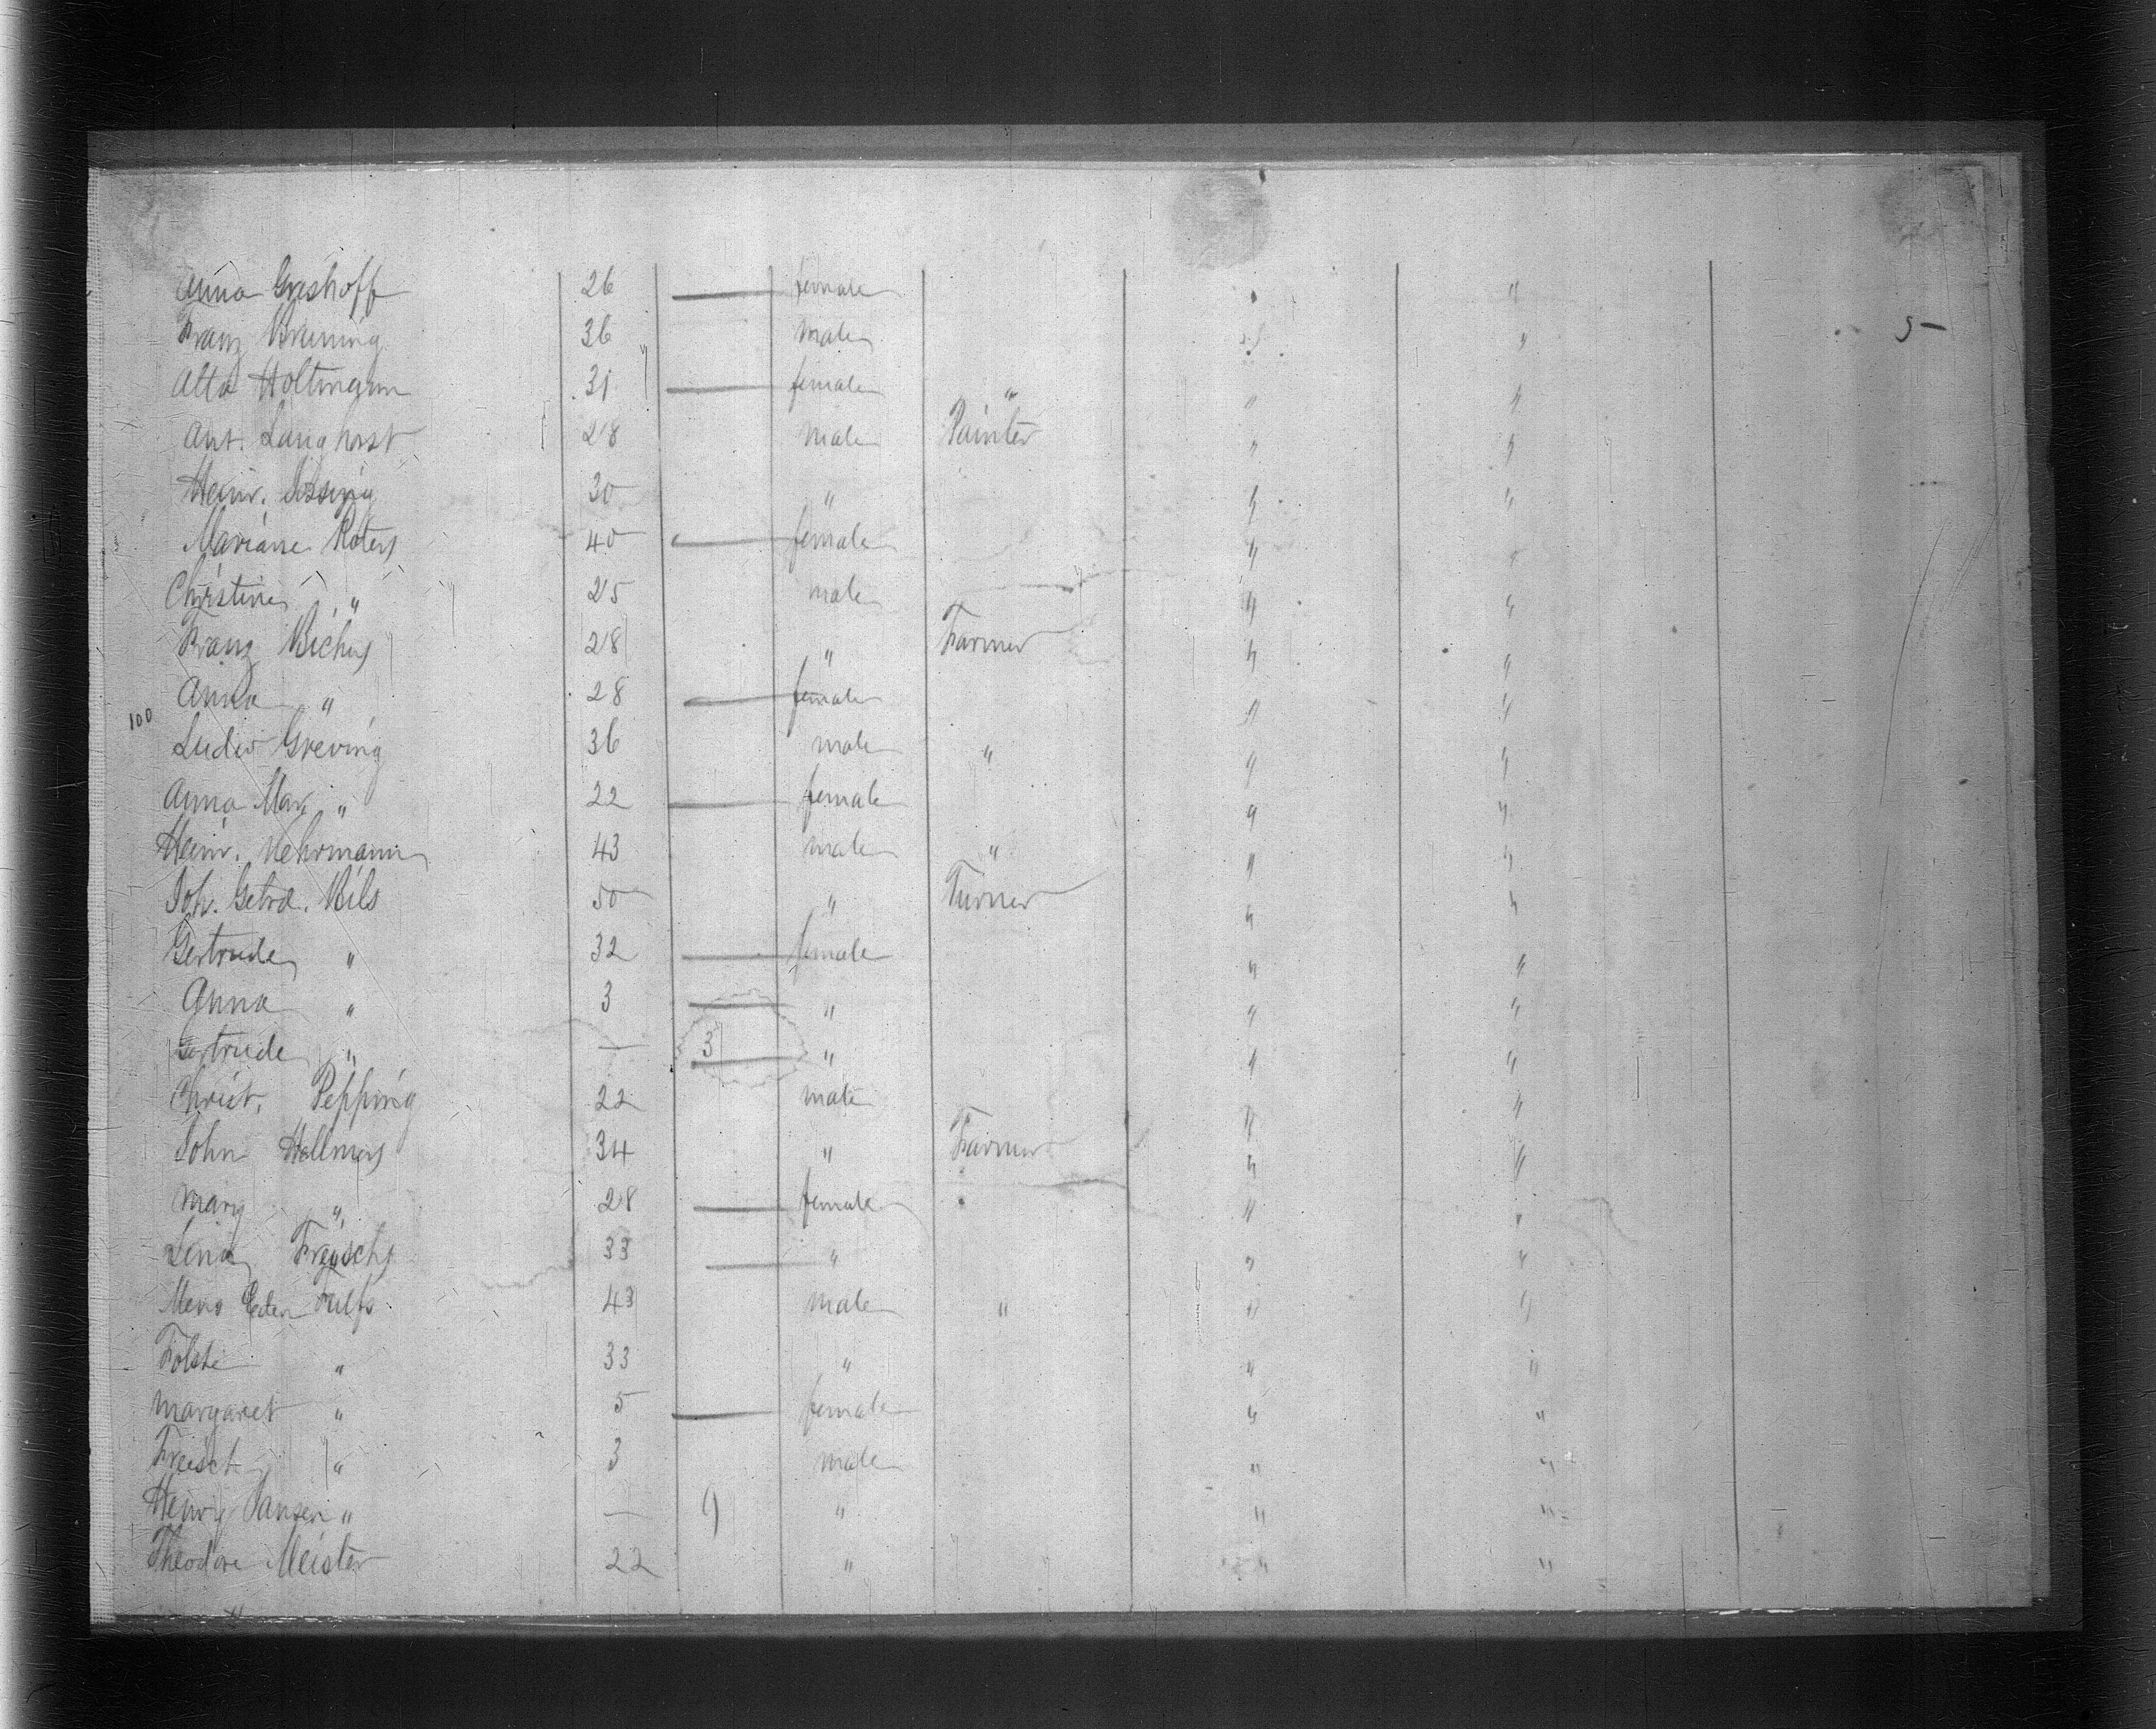 Anna Greshoff 26 — female " "
Franz Bruning 36 male " " 5-
Alta Holtmann 31 — female " " "
Ant. Langhorst 28 male Painter " "
Heinr. 30 " " "
Mariane Roters 40 — female " "
Christine " 25 male " "
Franz 28 " Farmer " "
Anna " 28 — female " "
100 Ludw Greving 36 male " " "
Anna Mar. " 22 — female " "
Heinr. Wehrmann 43 male " " "
Joh. Getrd. Bils 50 " Turner " "
Gertrude " 32 — female " "
Anna " 3 — " " "
Gertrude " — 3 — " " "
Christ. Pepping 22 male " "
John Hellmers 34 " Farmer " "
Mary " 28 — female " " "
Lena 33 — " " "
Meno Eden Fulfs 43 male " " "
Folste " 33 " " "
Margaret " 5 — female " "
" 3 male " "
Henry Jansen " — 9 " " "
Theodore Meister 22 " " "